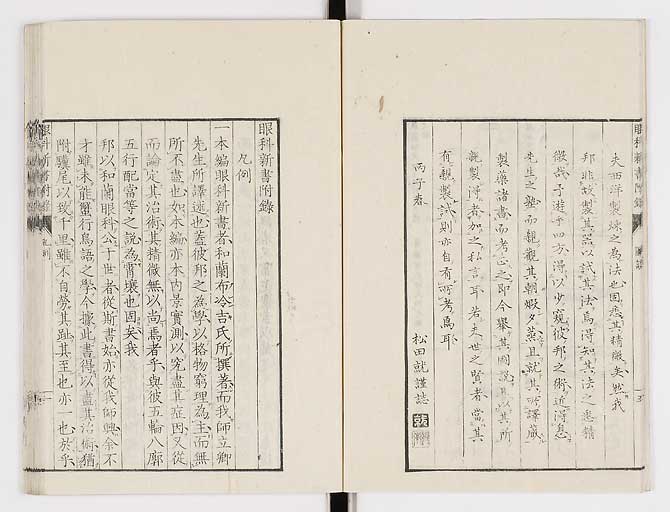 夫西洋製煉之為法也固悉其精微矣然我
邦非故製其器以試其法焉得知其法之悉精
微哉子遊于四方得以少窺彼邦之術近得見
先生之塾而親觀其朝煅夕蒸且就其所譯嚴
製藥諸書而考之即今舉其圖説且以其所
親製得者加之私言耳若夫世之賢者當其
有親製試則亦自有所考焉耳
丙子春
松田就謹誌
眼科新書附錄
眼科新書附錄
凡例
一本編眼科新書者和蘭布冷吉氏所撰著而我師立卿
先生所譯述也蓋彼邦之為學以格物窮理為主而無
所不盡也如本編亦本內景實測以究盡其症因又從
而論定其治術其精微無以尚焉者乎與彼五輪八廓
五行配當等之說為霄壤也固矣我
邦以和蘭眼科公于世者從斯書始亦從我師興余不
才雖未能蟹行鳥語之學今據此書得以盡其治術猶
附驥尾以致千里雖不自勞其趾其至也亦一也於乎
眼科新書附錄
凡例